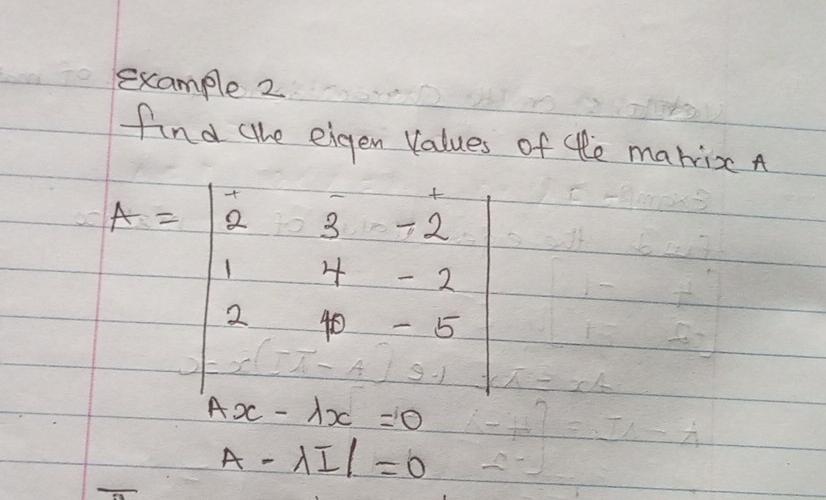 Example 2
find the eigen values of the matrix A
+ - +
A = | 2 3 - 2 |
1 4 - 2
2 10 - 5
Ax - λx = 0
A - λI| = 0